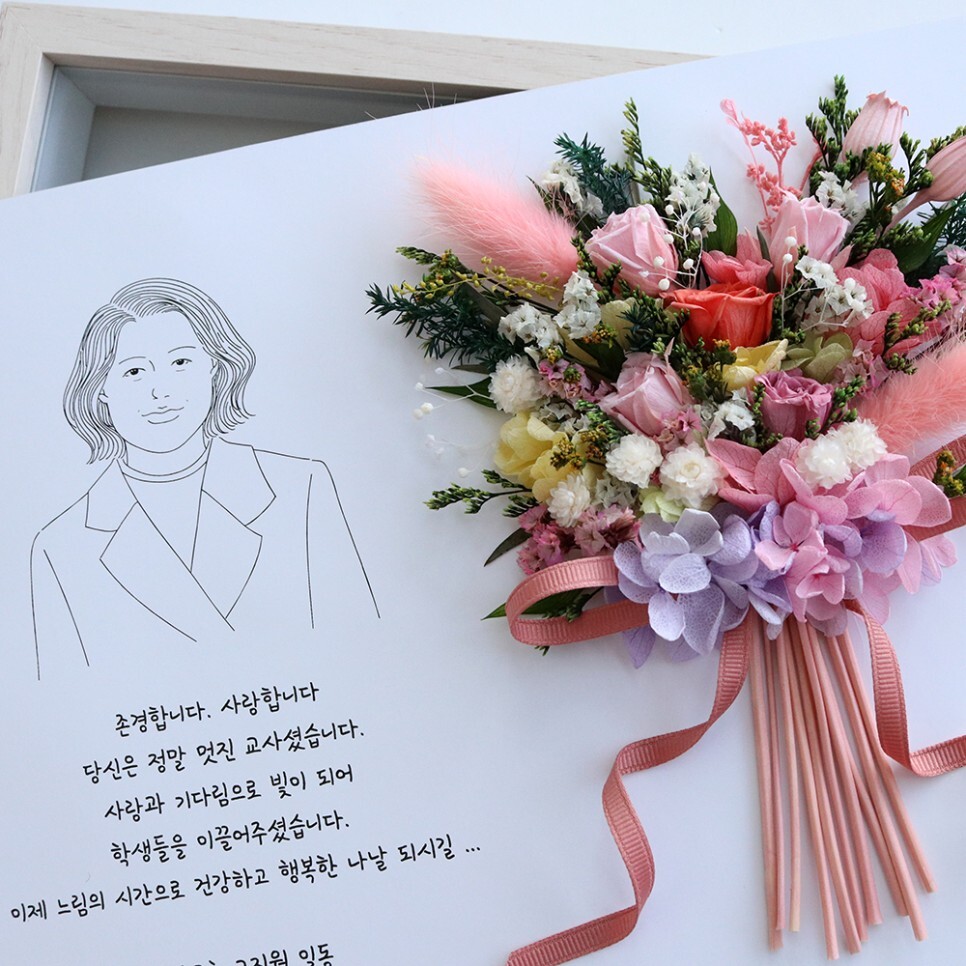 존경합니다. 사랑합니다
당신은 정말 멋진 교사셨습니다.
사랑과 기다림으로 빛이 되어
학생들을 이끌어주셨습니다.
이제 느림의 시간으로 건강하고 행복한 나날 되시길 ...
일동